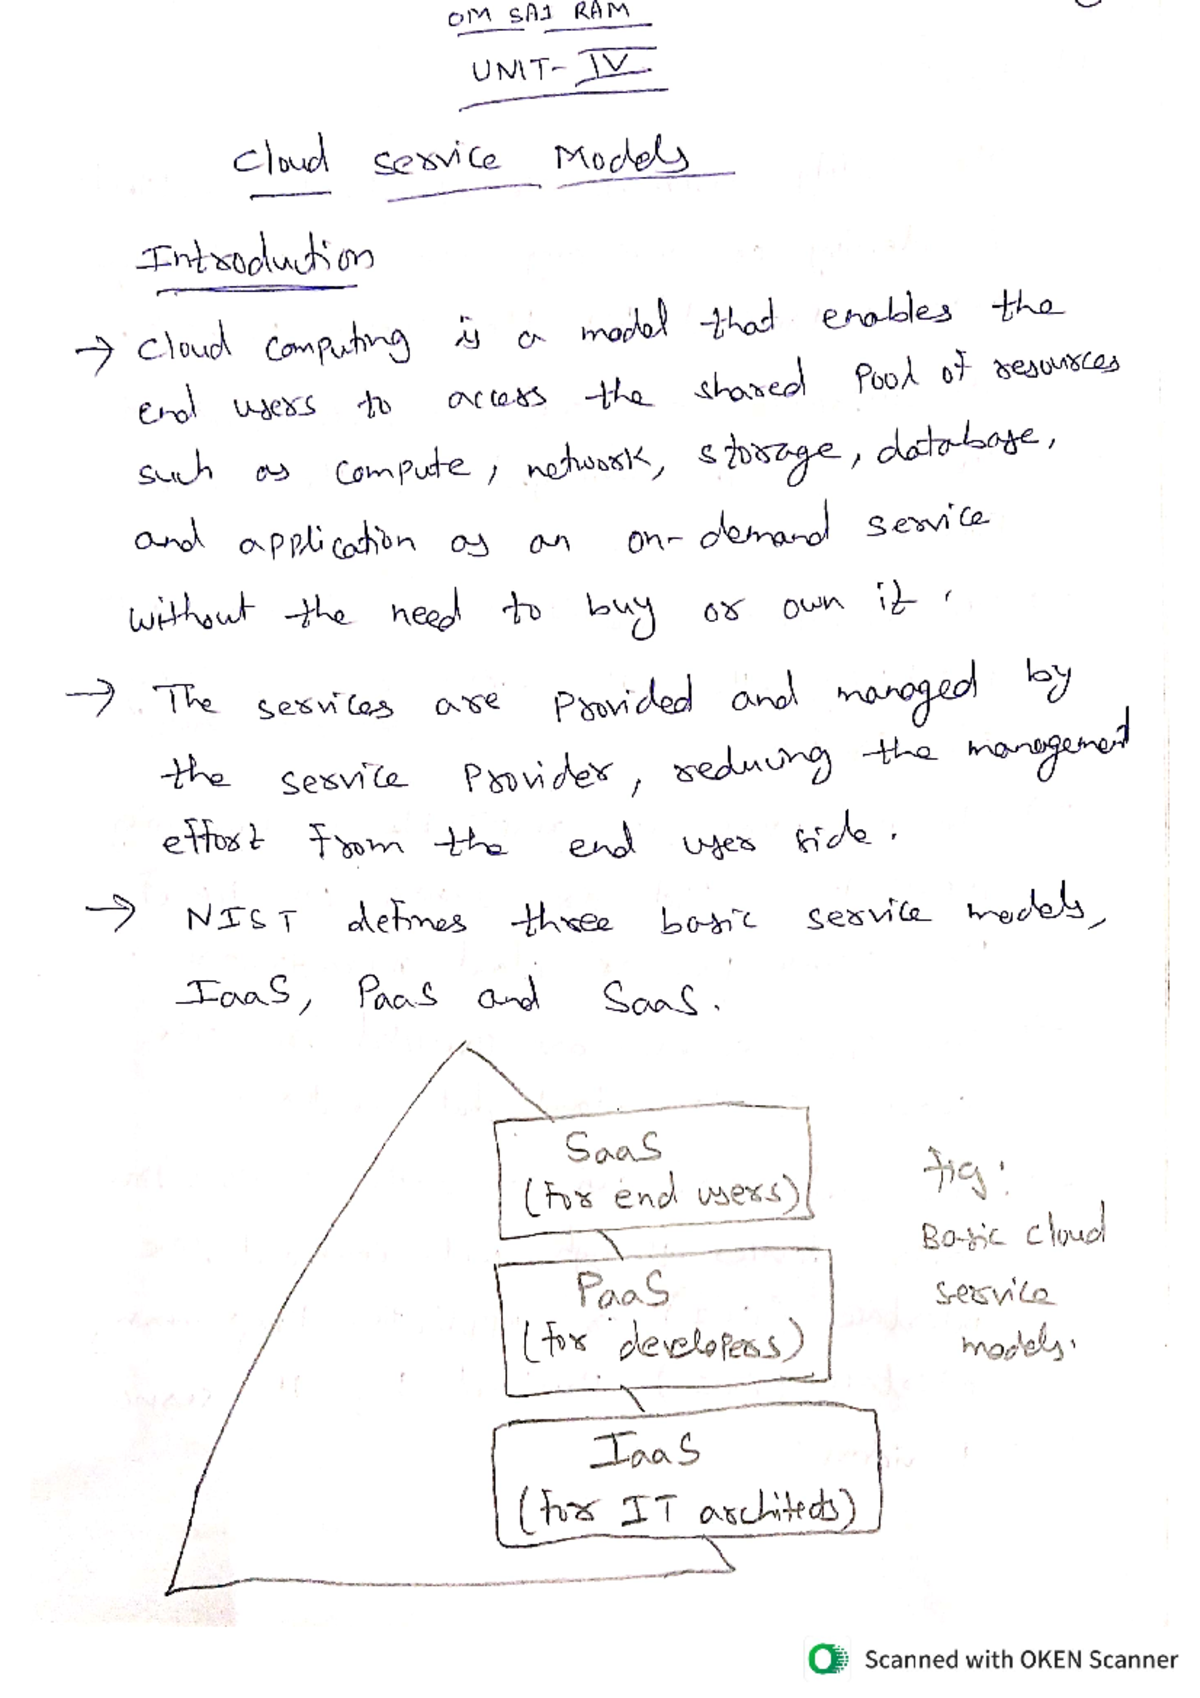 OM SAI RAM
UNIT-IV
Cloud service Models
Introduction
→ Cloud computing is a model that enables the
end users to access the shared Pool of resources
such as compute, network, storage, database,
and application as an on-demand service
without the need to buy or own it.
→ The services are Provided and managed by
the service Provider, reducing the management
effort from the end user side.
→ NIST defines three basic service models,
IaaS, PaaS and SaaS.
SaaS
(for end users)
Fig:
Basic cloud
service
models.
PaaS
(for developers)
IaaS
(for IT architects)
Scanned with OKEN Scanner